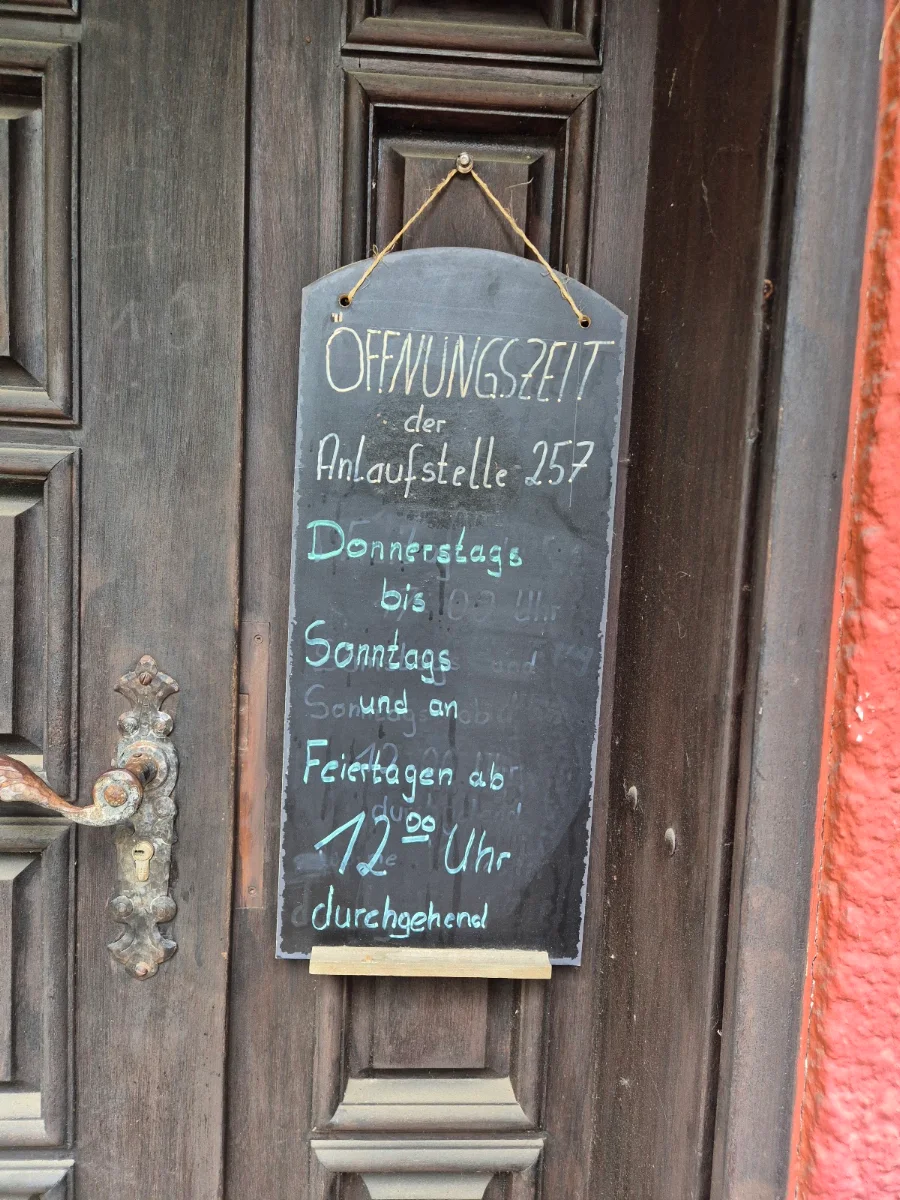 ÖFFNUNGSZEIT
der
Anlaufstelle 257
Donnerstags
bis
Sonntags
und an
Feiertagen ab
12⁰⁰ Uhr
durchgehend